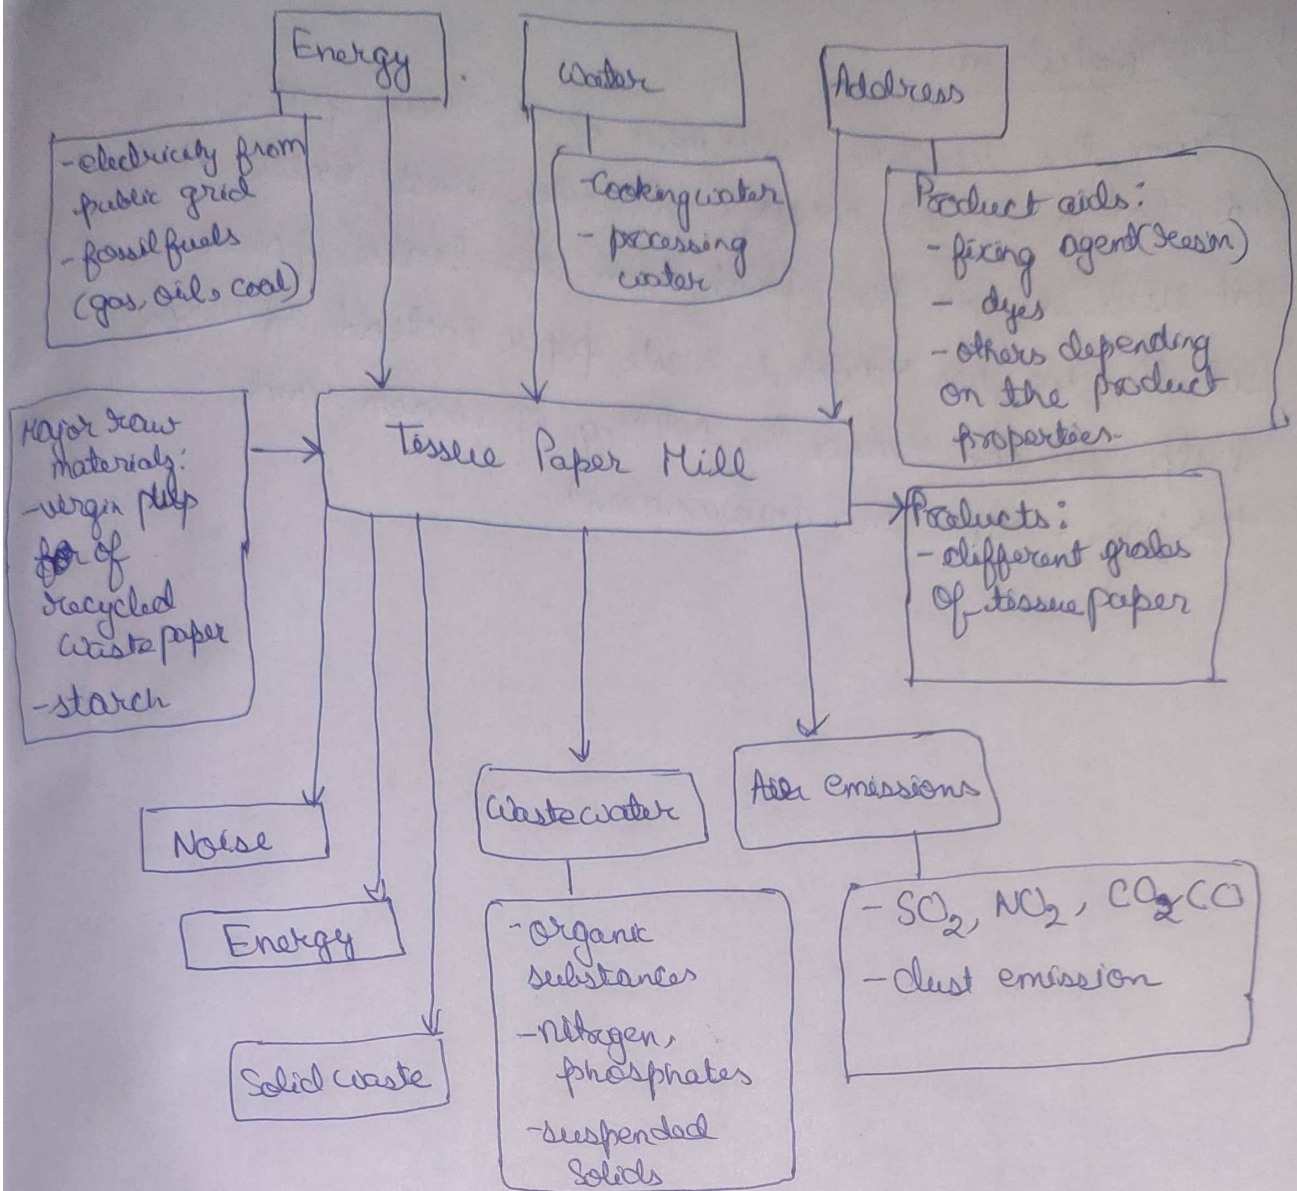 Energy
Water
Address
-electricity from
public grid
-fossil fuels
(gas, oil, coal)
-Cooking water
- processing
water
Product aids:
-fixing agent(resin)
- dyes
-others depending
on the product
properties.
Major raw
materials:
-vergin pulp
or of
recycled
waste paper
-starch
Tissue Paper Mill
Products:
-different grabs
of tissue paper
Noise
Energy
Solid waste
Wastewater
-organic
substances
-nitrogen,
phosphates
-suspended
solids
Air emissions
-SO₂, NO₂, CO₂ CO
-dust emission